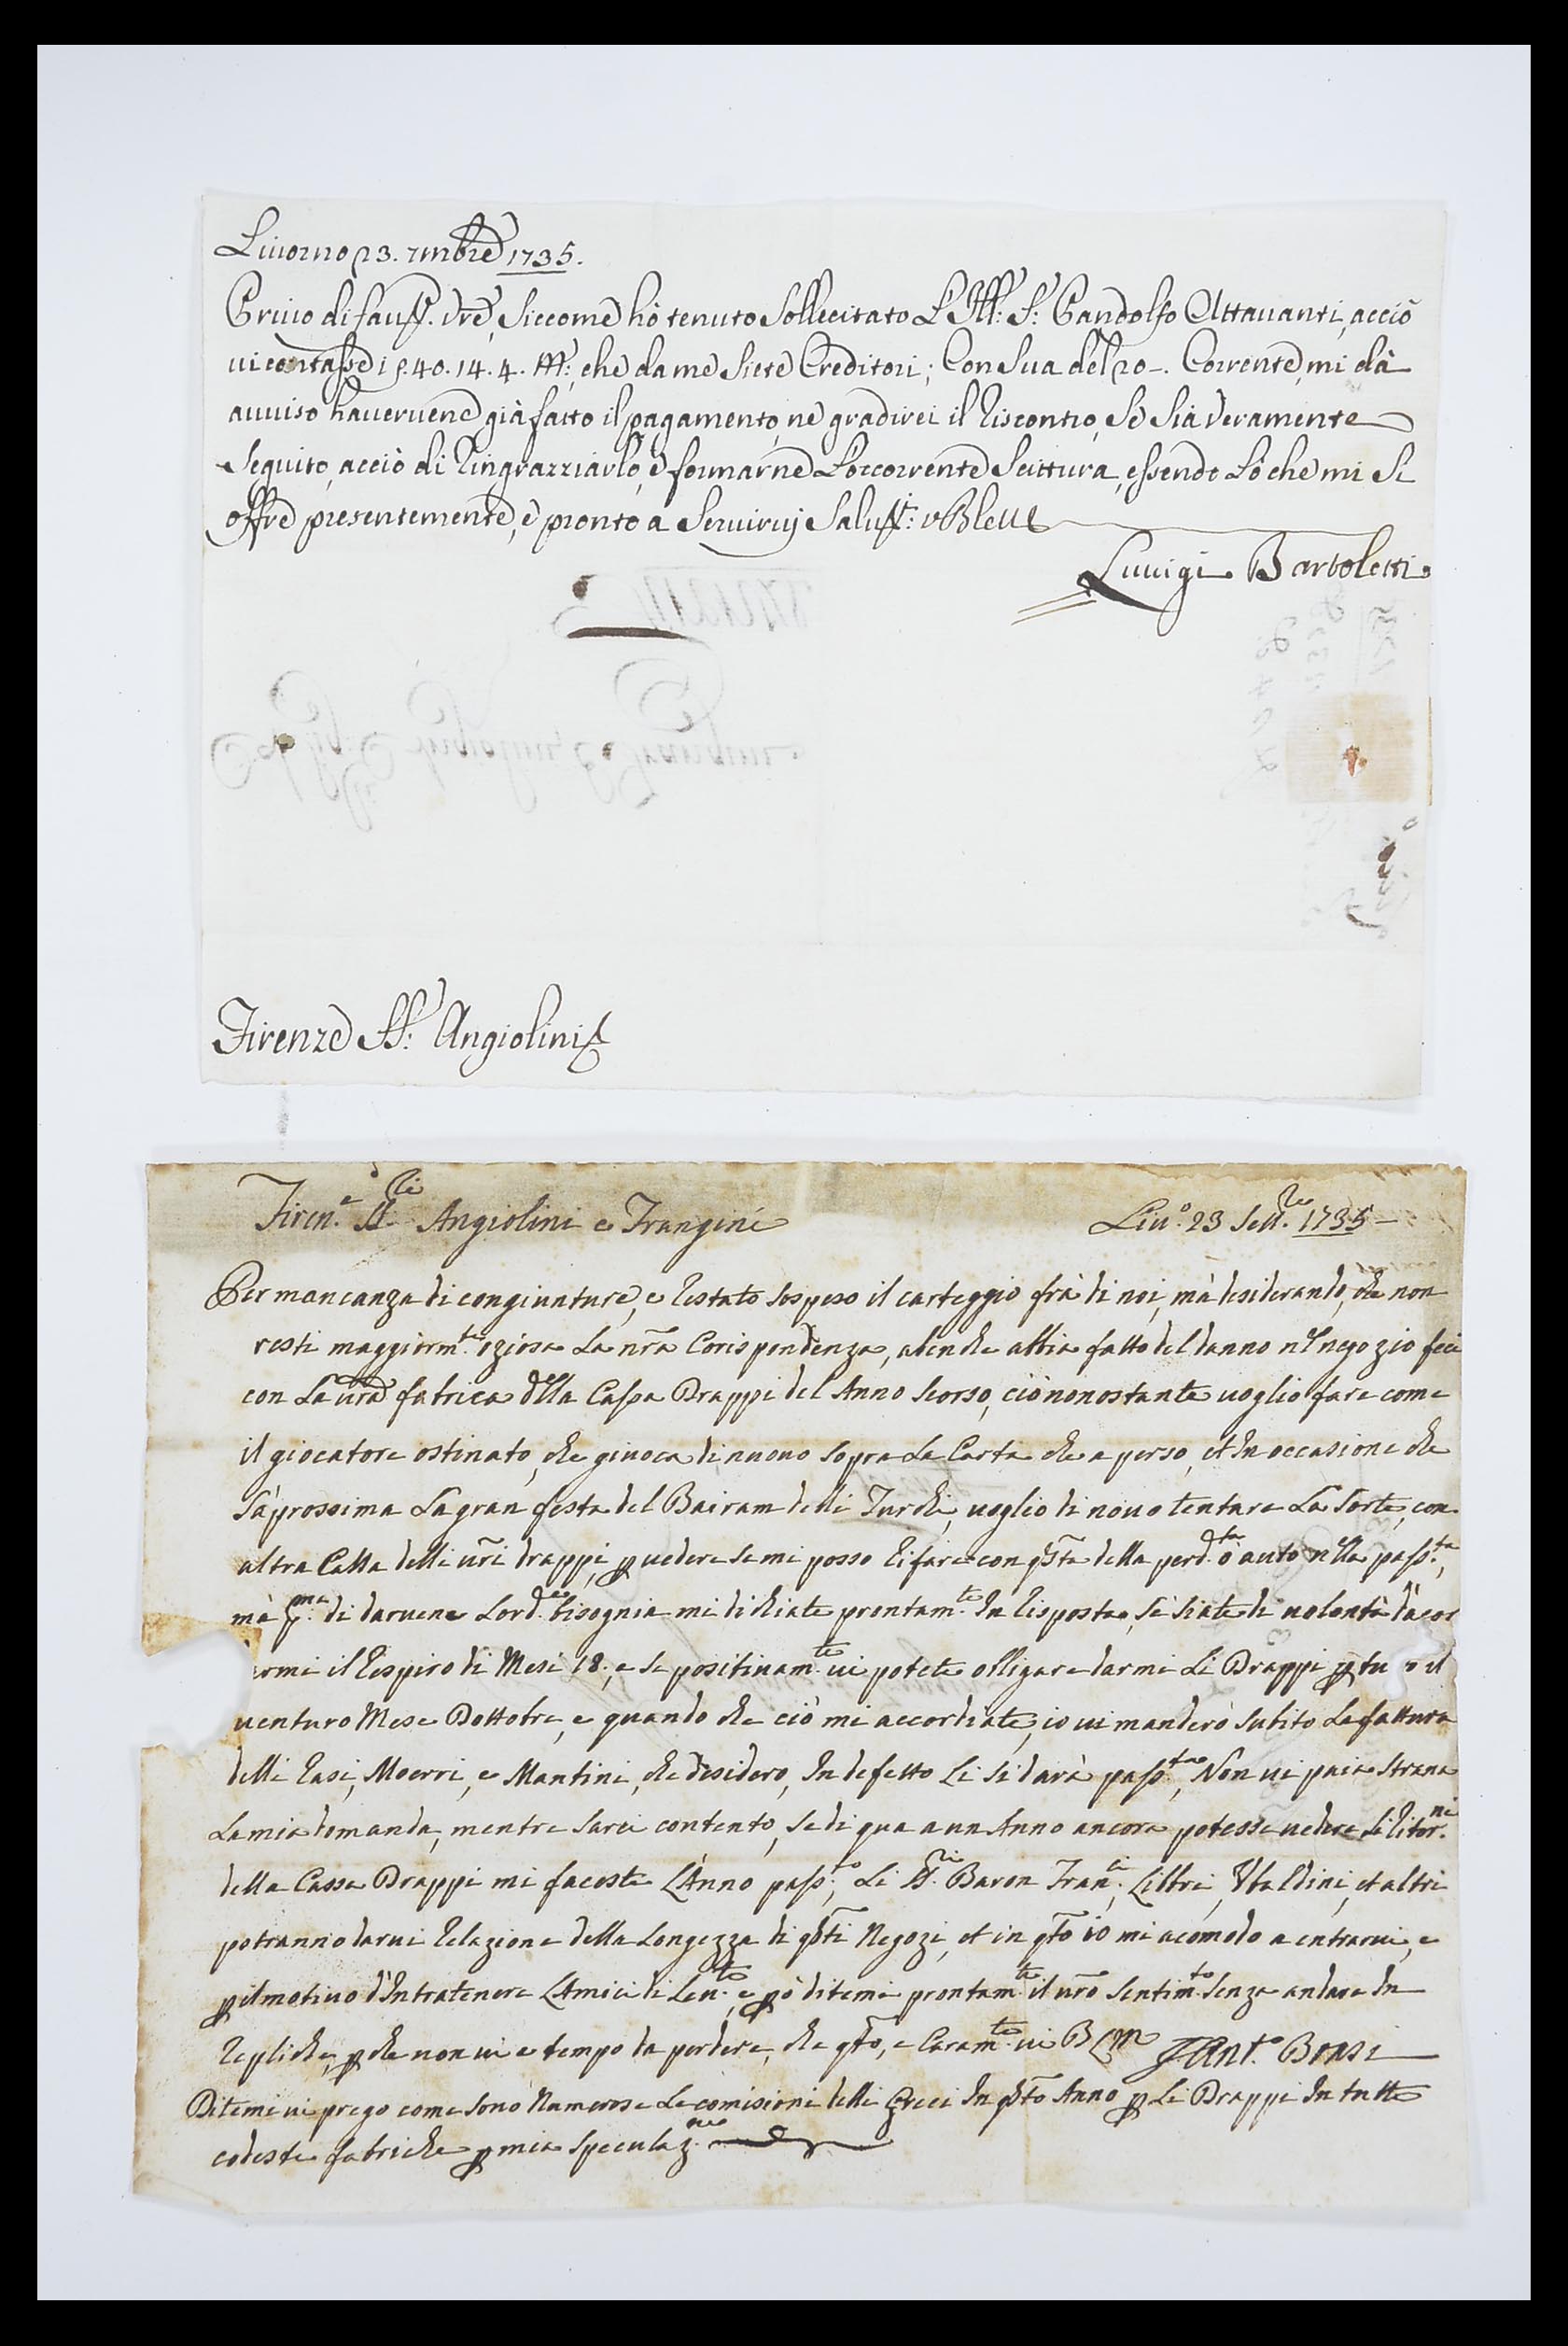 Livorno 23. 7mbre 1735.
Privo di fauss. vre, Siccome hò tenuto Sollecitato L'Ill: S: Pandolfo Attavanti, acciò
vi contasse i 40. 14. 4. che da me Siete Creditori; Con Sua del 20-. Corrente, mi dà
avviso havervene già fatto il pagamento, ne gradirei il Riscontro, Se Sia veramente
Seguito, acciò di Ringrazziarlo, e formarne L'occorrente Scittura, essendo Lò che mi Si
offre presentemente, e pronto a Servirvj
Luuigi Bartoletti
Firenze SS: Angiolini
Firen.e SS.ri Angiolini e Frangini
Liu.o 23 Sett.re 1735 -
Per mancanza di congiunture, e restato sospeso il carteggio frà di noi, mà desiderando, che non
resti maggiorm.te oziosa La nr̃a Corispondenza, abenche abbia fatto del danno nel negozio feci
con La vr̃a fabrica della Cassa Drappi del Anno Scorso, ciò nonostante voglio fare come
il giocatore ostinato, che giuoca di nuovo sopra La Carta che a perso, et In occasione che
Sà prossima La gran festa del Bairam delli Turchi, voglio di novo tentare La Sorte, con
altra Cassa delli vr̃i drappi, p vedere se mi posso Rifare con q̃sta della perd.ta ò auto nella pass.ta,
mà p.ma di darvene Lord.e bisognia mi dichiate prontam.te In Risposta, sè siate di volontà d'acor
armi il Respiro di Mesi 18., e se positivam.te vi potete obligare darmi Li Drappi p tu o il
venturo Mese Dottobre, e quando che ciò mi accordiate, io vi manderò Subito La fattura
delli Rasi, Moerri, e Mantini, che desidero, In defetto Li Si darà pass.to, Non vi paia Strana
La mia domanda, mentre sarei contento, se di qua a un Anno ancora potesse vedere Li Ritor.ni
della Cassa Drappi mi faceste L'Anno pass.to, Li SS.ri Baron Fran.ci, Libri, Ubaldini, et altri
potranno darvi Relazione della Longezza di q̃sti Negozi, et in q̃to io mi acomodo a entrarvi, e
p il motivo d'Intratenere L'Amici di Lev.te, e p ò ditemi prontam.te il vr̃o Sentim.to Senza andare In
Repliche, p che non vi e tempo da perdere, che q̃to, e Caram.te vi B L M
F Ant.o Borsi
Ditemi vi prego come sono Numerose Le comisioni delli Greci In q̃sto Anno p Li Drappi In tutte
codeste fabriche p mia Speculaz.ne